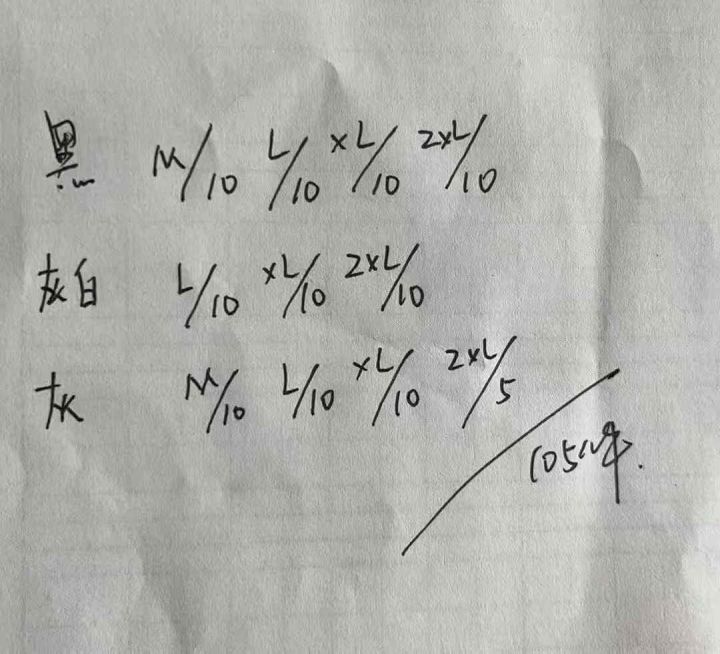 黑 M/10 L/10 XL/10 2XL/10
灰白 L/10 XL/10 2XL/10
灰 M/10 L/10 XL/10 2XL/5
105件.